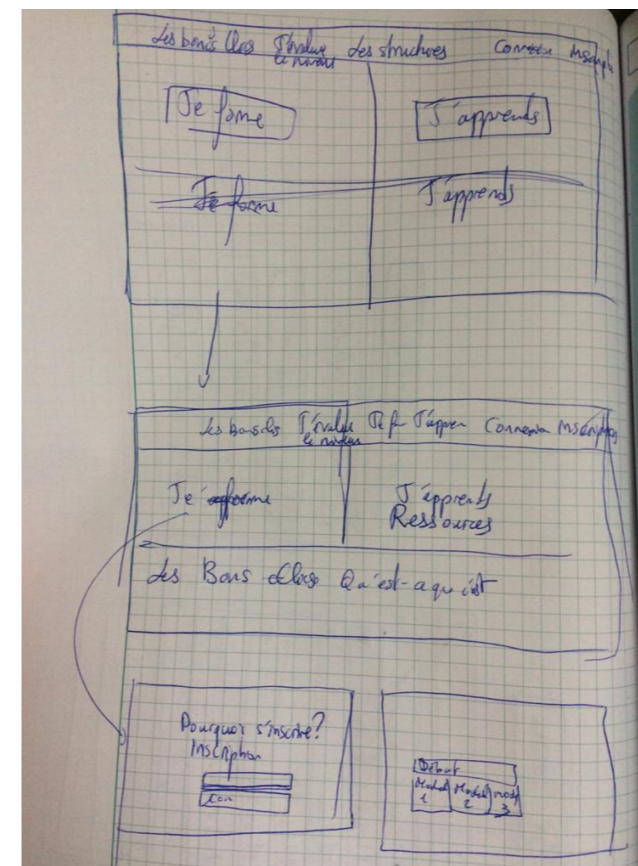 Les bons clics J'évalue le niveau Les structures Connexion Inscription
Je forme J'apprends
Je forme J'apprends
Les Bons clics J'évalue le niveau Je f J'appren Connexion Inscription
Je forme J'apprends
Ressources
Les Bons Clics Qu'est-a qu c'est
Pourquoi s'inscrire?
Inscription
Con
Début
Module 1 Module 2 Mod 3